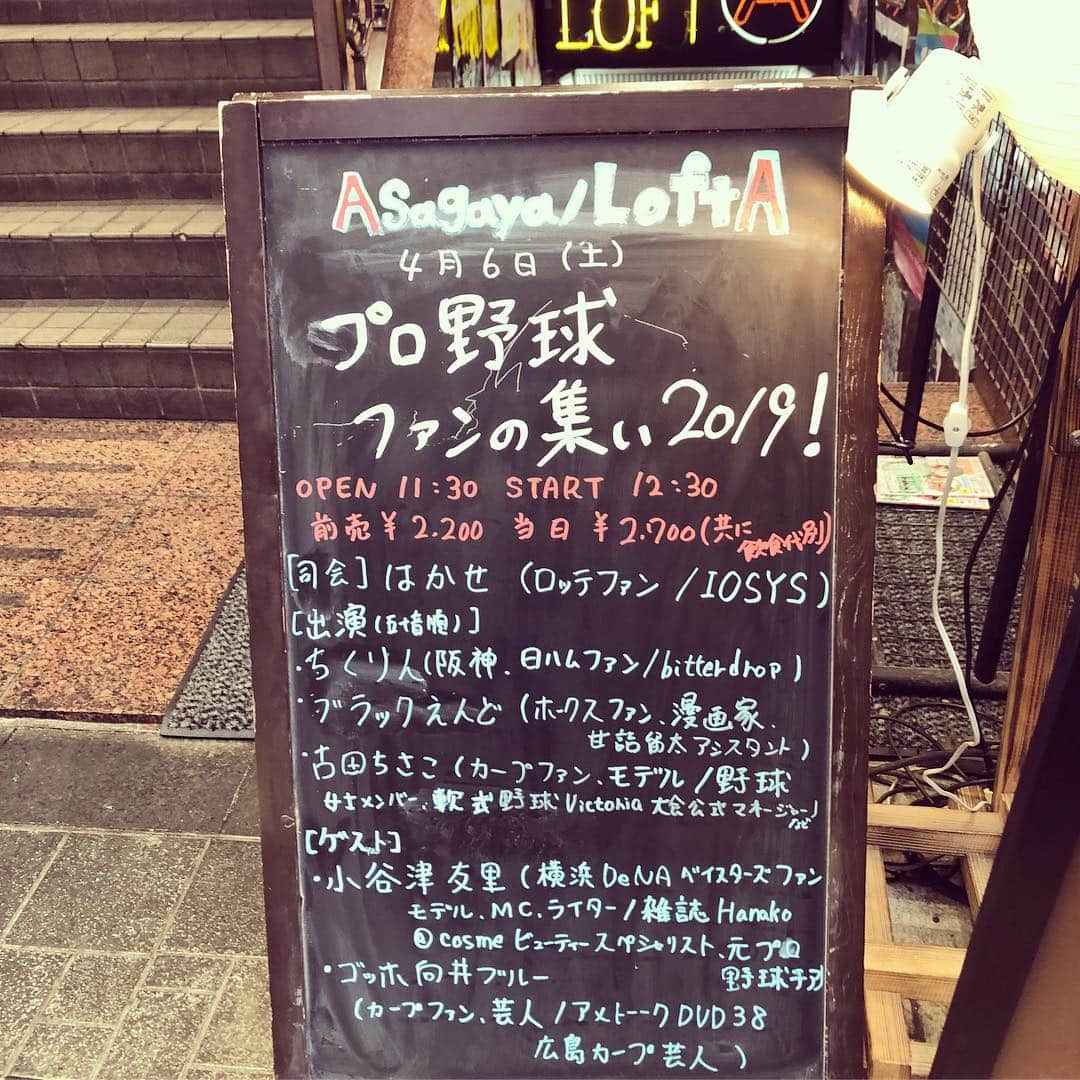 LOFT A
ASagaya/LoftA
4月6日(土)
プロ野球
ファンの集い2019!
OPEN 11:30 START 12:30
前売¥2.200 当日¥2.700(共に飲食代別)
[司会]はかせ(ロッテファン/IOSYS)
[出演(五十音順)]
・ちくり人(阪神、日ハムファン/bitterdrop)
・ブラックえんど(ホークスファン、漫画家、
甘詰留太アシスタント)
・古田ちさこ(カープファン、モデル/野球
女子メンバー、軟式野球Victoria大会公式マネージャーなど)
[ゲスト]
・小谷津友里(横浜DeNAベイスターズファン
モデル、MC、ライター/雑誌Hanako
@cosmeビューティースペシャリスト、元プロ
野球チア)
・ゴッホ向井ブルー
(カープファン、芸人/アメトークDVD38
広島カープ芸人)